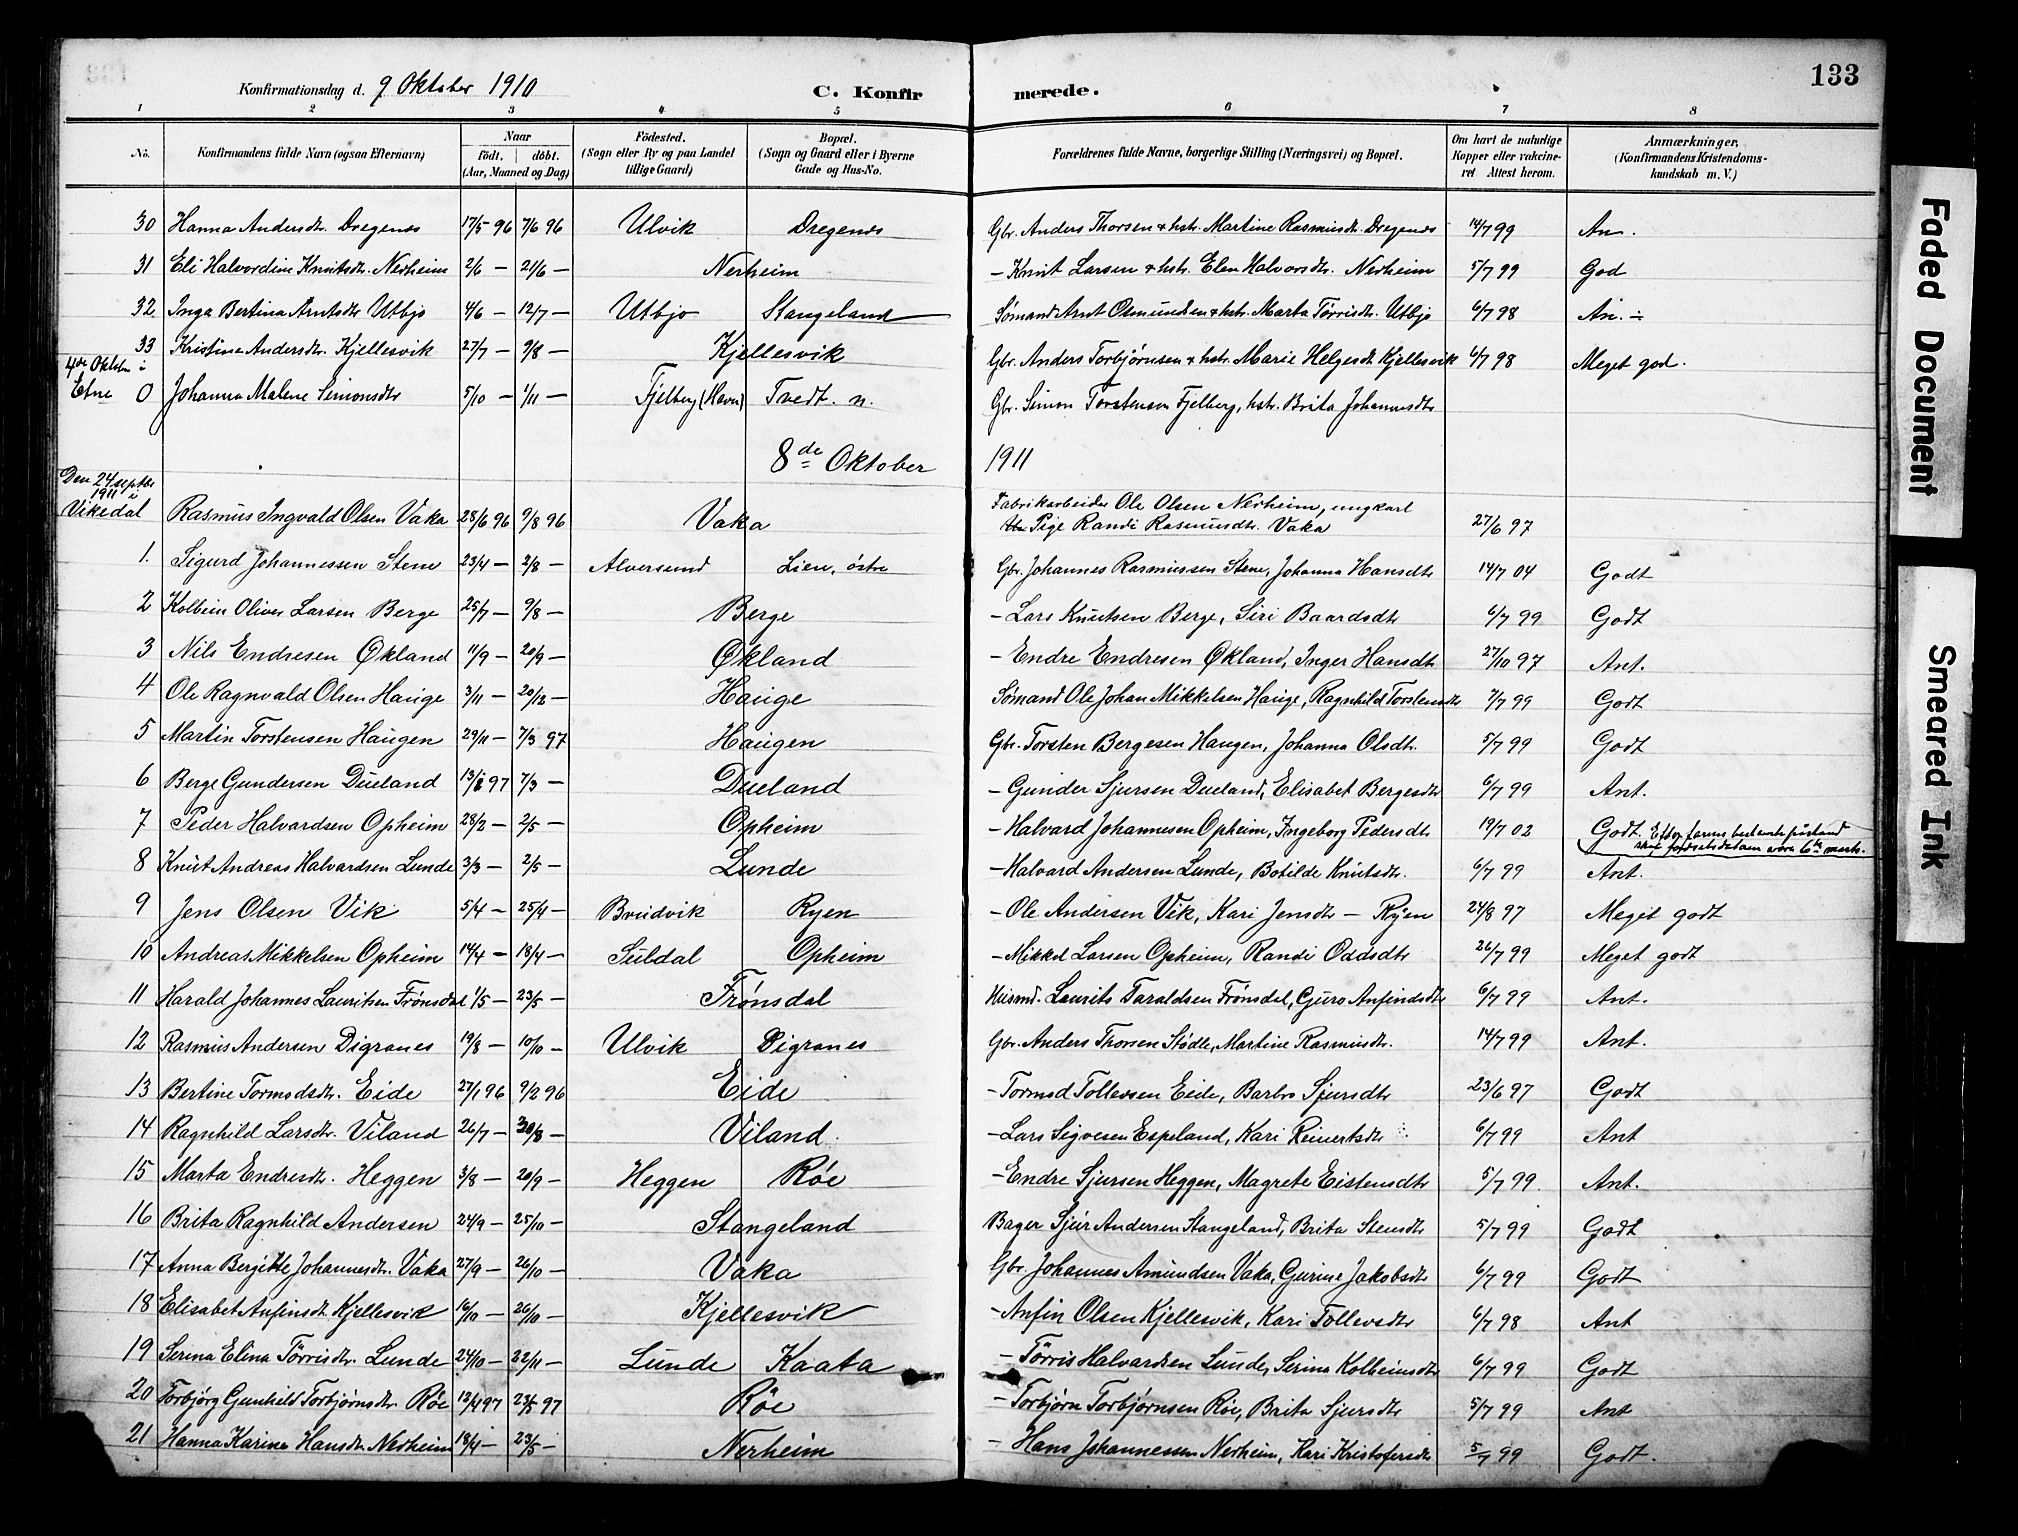 133
Konfirmationsdag d. 9 Oktober 1910 C. Konfirmerede.
1 2 3 4 5 6 7 8
No. Konfirmandens fulde Navn (ogsaa Efternavn) Naar födt. döbt. (Aar, Maaned og Dag) Födested. (Sogn eller By og paa Landet tillige Gaard) Bopæl. (Sogn og Gaard eller i Byerne Gade og Hus-No. Forældrenes fulde Navne, borgerlige Stilling (Næringsvei) og Bopæl. Om havt de naturlige Kopper eller vakcineret Attest herom. Anmærkninger. (Konfirmandens Kristendomskundskab m. V.)
30 Hanna Andersdtr. Dregenes 17/5 96 7/6 96 Ulvik Dregenes Gbr. Anders Thorsen & hstr. Martine Rasmusdtr. Dregenes 14/7 99 An.
31 Eli Halvordine Knutsdtr. Nerheim 2/6 — 21/6 — Nerheim - Knut Larsen & hstr. Elen Halvorsdtr. Nerheim 5/7 99 God
32 Inga Bertina Arntsdtr Utbjo 4/6 — 12/7 — Utbjo Stangeland Sømand Arnt Osmundsen & hstr. Marta Tørrisdtr. Utbjo 6/7 98 An. ÷
33 Kristine Andersdtr. Kjellesvik 27/7 — 9/8 — Kjellesvik Gbr. Anders Torbjørnsen & hstr. Marie Helgesdtr Kjellesvik 6/7 98 Meget god.
4de Oktober i
Etne 0 Johanna Malene Simonsdtr 5/10 — 1/11 — Fjelberg (Havn) Tvedt. n. Gbr. Simon Torstensen Fjelberg, hstr. Brita Johannesdtr
8de Oktober 1911
Den 24 septbr 1911 i
Vikedal Rasmus Ingvald Olsen Vaka 28/6 96 9/8 96 Vaka Fabrikarbeider Ole Olsen Nerheim, ungkarl
Pige Randi Rasmusdtr. Vaka 27/6 97
1. Sigurd Johannessen Stene 23/4 — 2/8 — Alversund Lien, östre Gbr. Johannes Rasmussen Stene, Johanna Hansdtr 14/7 04 Godt
2 Kolbein Oliver Larsen Berge 25/7 — 9/8 — Berge - Lars Knutsen Berge, Siri Baardsdtr 6/7 99 Godt
3 Nils Endresen Økland 11/9 — 20/9 — Økland - Endre Endresen Økland, Inger Hansdtr 27/10 97 Ant.
4 Ole Ragnvald Olsen Hauge 3/11 — 20/12 — Hauge Sømand Ole Johan Mikkelsen Hauge, Ragnhild Torstensdtr 7/7 99 Godt
5 Martin Torstensen Haugen 29/11 — 7/3 97 Haugen Gbr. Torsten Bergesen Haugen, Johanna Olsdtr. 5/7 99 Godt
6 Berge Gundersen Dueland 13/2 97 7/3 — Dueland - Gunder Sjursen Dueland, Elisabet Bergesdtr 6/7 99 Ant.
7 Peder Halvardsen Opheim 28/2 — 2/5 — Opheim - Halvard Johannesen Opheim, Ingeborg Pedersdtr 19/7 02 Godt. Efter farens bestemte paastand skal fødselsdatoen være 6te marts.
8 Knut Andreas Halvardsen Lunde 3/3 — 2/5 — Lunde - Halvard Andersen Lunde, Botilde Knutsdtr. 6/7 99 Ant.
9 Jens Olsen Vik 5/4 — 25/4 — Brudvik Ryen - Ole Andersen Vik, Kari Jensdtr — Ryen 24/8 97 Meget godt
10 Andreas Mikkelsen Opheim 14/4 — 18/4 — Suldal Opheim - Mikkel Larsen Opheim, Randi Oddsdtr 26/7 99 Meget godt
11 Harald Johannes Lauritsen Frønsdal 1/5 — 23/5 — Frønsdal Husmd. Laurits Taraldsen Frønsdal, Guro Anfindsdtr 6/7 99 Ant.
12 Rasmus Andersen Digranes 19/8 — 10/10 — Ulvik Digranes Gbr. Anders Thorsen Stødle, Martine Rasmusdtr. 14/7 99 Ant.
13 Bertine Tormodsdtr. Eide 27/1 96 9/2 96 Eide - Tormod Tollevsen Eide, Barbro Sjursdtr 23/6 97 Godt
14 Ragnhild Larsdtr. Viland 26/7 — 30/8 — Viland - Lars Sigvesen Espeland, Kari Reinertsdtr 6/7 99 Ant
15 Marta Endresdtr. Heggen 3/8 — 20/9 — Heggen Røe - Endre Sjursen Heggen, Magrete Eistensdtr 5/7 99 Ant.
16 Brita Ragnhild Andersen 24/9 — 25/10 — Stangeland Bager Sjur Andersen Stangeland, Brita Stensdtr 5/7 99 Godt
17 Anna Bergitte Johannesdtr. Vaka 27/9 — 26/10 — Vaka Gbr. Johannes Amundsen Vaka, Gurine Jakobsdtr 6/7 99 Godt
18 Elisabet Anfinsdtr. Kjellesvik 16/10 — 26/10 — Kjellesvik - Anfin Olsen Kjellesvik, Kari Tollevsdtr 6/7 98 Ant
19 Serina Elina Törrisdtr. Lunde 24/10 — 22/11 — Lunde Kaata - Törris Halvardsen Lunde, Serina Kolbeinsdtr 6/7 99 Godt
20 Torbjörg Gunhild Torbjørnsdtr. Röe 12/4 97 23/5 97 Röe - Torbjörn Torbjørnsen Röe, Brita Sjursdtr 5/7 99 Ant
21 Hanna Karine Hansdtr Nerheim 18/4 — 23/5 — Nerheim - Hans Johannessen Nerheim, Kari Kristofersdtr 5/7 99 Godt.
Faded Document
Smeared Ink